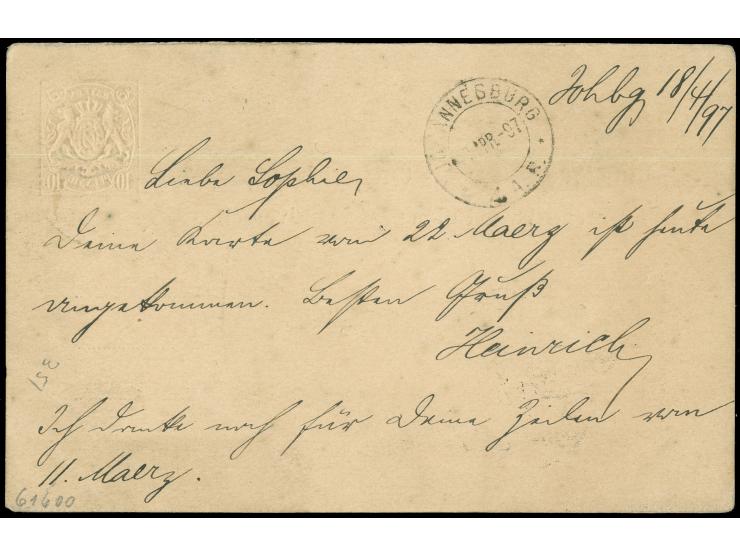 Johbg 18/4/97
JOHANNESBURG
APR-97
Z.A.R.
Liebe Sophie,
Deine Karte von 22 Maerz ist heute
angekommen. Besten Gruß
Heinrich
Ich danke noch für Deine Zeilen von
11. Maerz.
61600